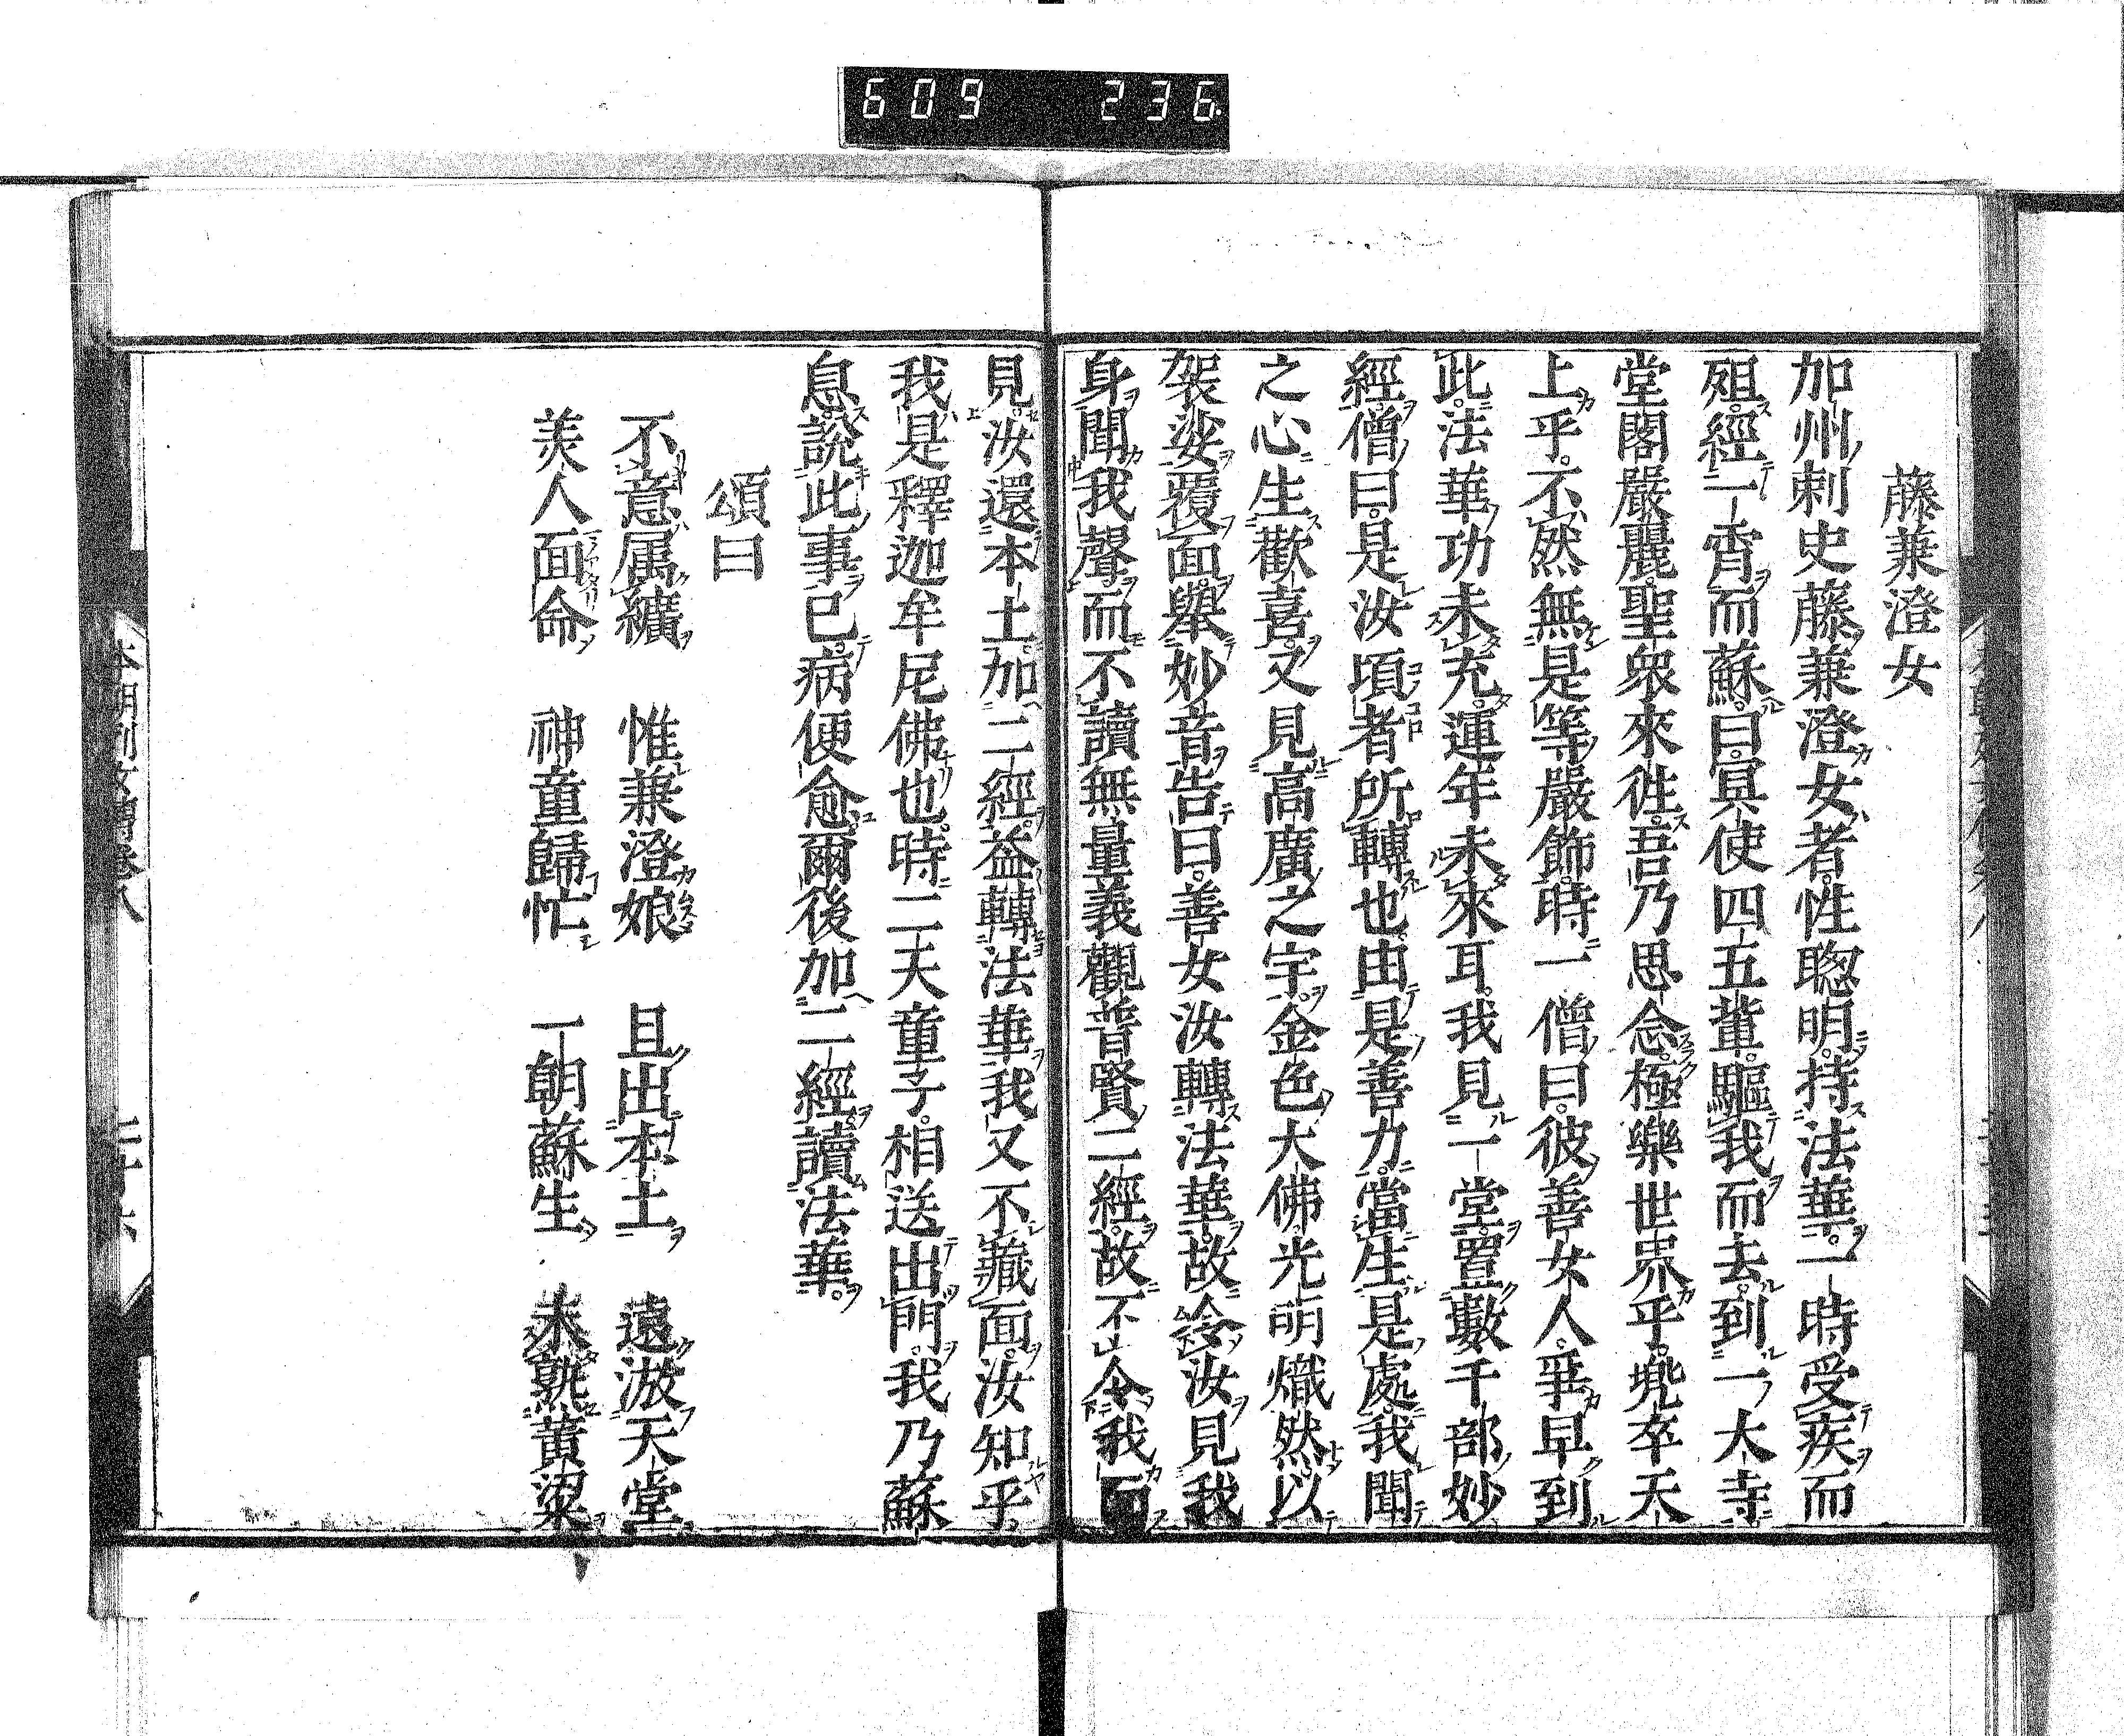 609 236
藤兼澄女
加州刺史藤兼澄女者。性聰明。持法華。一時受疾而
殂。經一宵而蘇。曰。冥使四五輩。驅我而去。到一大寺
堂閣嚴麗。聖衆來徃。吾乃思念。極樂世界乎。兠卒天
上乎。不然無是等嚴飾。時一僧曰。彼善女人。爭早到
此。法華功未充。運年未來耳。我見一堂。置數千部妙
經。僧曰。是汝頃者所轉也。由是善力。當生是處。我聞
之心生歡喜。又見高廣之宇。金色大佛。光明熾然。以
袈裟覆面。舉妙音告曰。善女汝轉法華。故令汝見我
身聞我聲。而不讀無量義觀普賢二經。故不令我面
見。汝還本土。加二經。益轉法華。我又不藏面。汝知乎。
我是釋迦牟尼佛也。時二天童子。相送出門。我乃蘇
息。說此事已。病便愈。爾後加二經讀法華。
頌曰
不意属纊 惟兼澄娘 且出本土 遠遊天堂
羙人面命 神童歸忙 一朝蘇生 未熟黃粱
本朝列女傳卷八 二十六